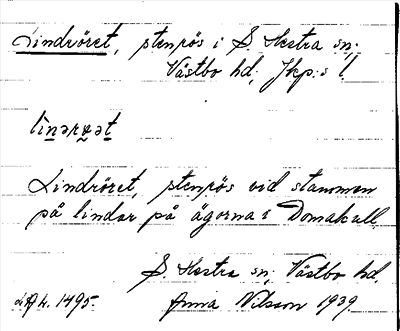 Lindröret, stenrös i S. Hestra sn;
Västbo hd; Jkp:s l.
Lindröret, stenrös vid stammen
på lindar på ägorna i Domakull.
S. Hestra sn, Västbo hd.
1495. Anna Nilsson 1939.